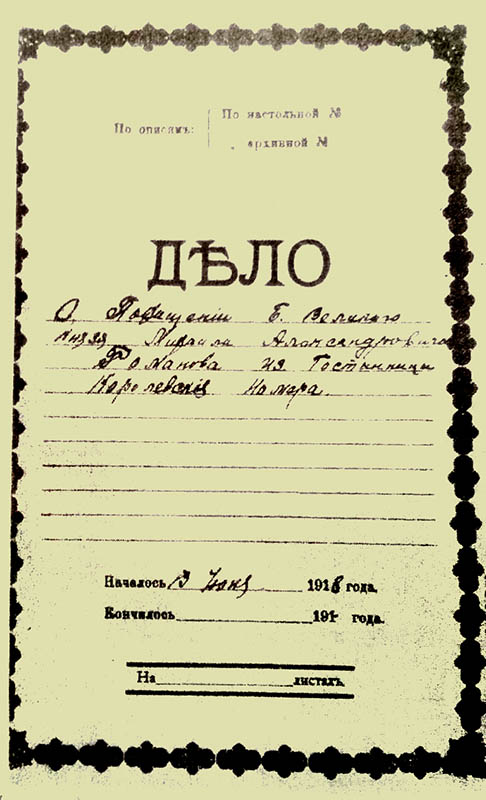 По описямъ:
По настольной №
„ архивной №
ДѢЛО
О Похищеніи Б. Великаго
князя Михаила Александровича
Романова из Гостинницы
Королевскія Номера
Началось 13 Юня 1918 года.
Кончилось 191 года.
На листахъ.